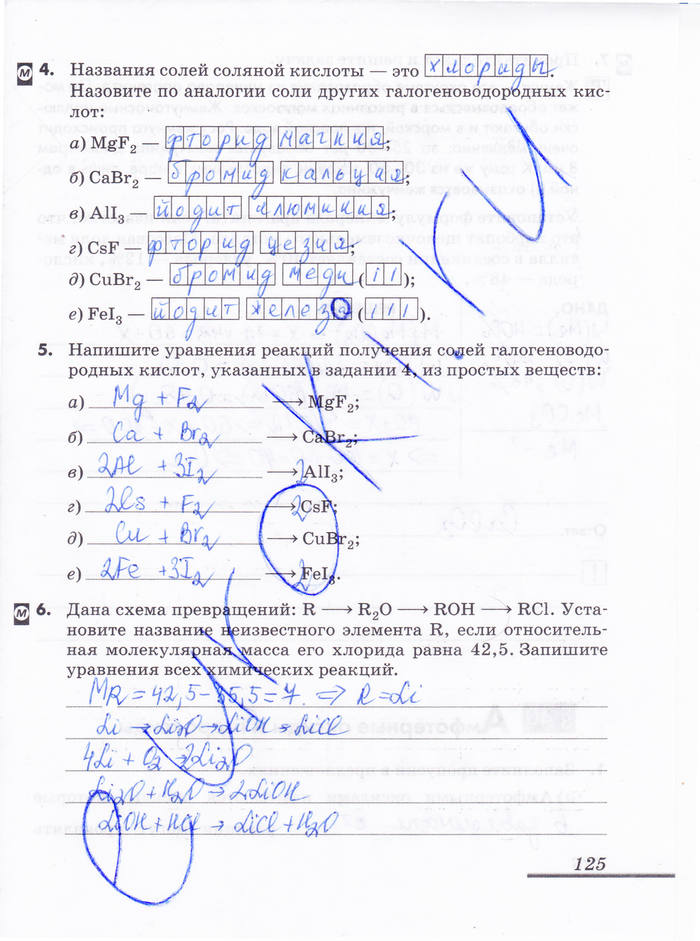 4. Названия солей соляной кислоты — это хлориды.
Назовите по аналогии соли других галогеноводородных кис-
лот:
а) MgF₂ — фторид магния;
б) CaBr₂ — бромид кальция;
в) AlI₃ — йодит алюминия;
г) CsF — фторид цезия;
д) CuBr₂ — бромид меди (ii);
е) FeI₃ — йодит железа (iii).
5. Напишите уравнения реакций получения солей галогеноводо-
родных кислот, указанных в задании 4, из простых веществ:
а) Mg + F₂ ⟶ MgF₂;
б) Ca + Br₂ ⟶ CaBr₂;
в) 2Al + 3I₂ ⟶ 2AlI₃;
г) 2Cs + F₂ ⟶ 2CsF;
д) Cu + Br₂ ⟶ CuBr₂;
е) 2Fe + 3I₂ ⟶ 2FeI₃.
м 6. Дана схема превращений: R ⟶ R₂O ⟶ ROH ⟶ RCl. Уста-
новите название неизвестного элемента R, если относитель-
ная молекулярная масса его хлорида равна 42,5. Запишите
уравнения всех химических реакций.
MR = 42,5 - 35,5 = 7. ⇒ R = Li
Li → Li₂O → LiOH → LiCl
4Li + O₂ → 2Li₂O
Li₂O + H₂O → 2LiOH
LiOH + HCl → LiCl + H₂O
125